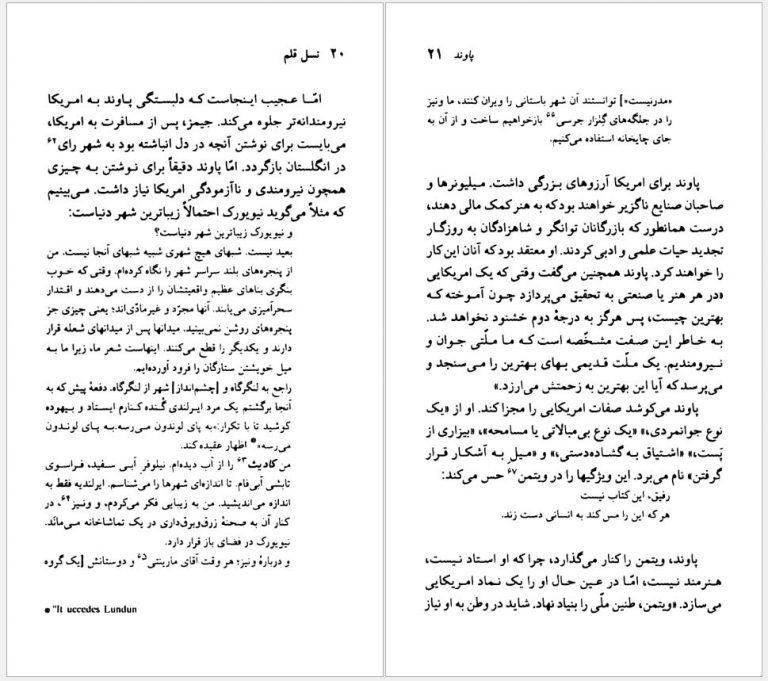 ۲۰ نسل قلم
امّا عجیب اینجاست که دلبستگی پاوند به امریکا
نیرومندانه‌تر جلوه می‌کند. جیمز، پس از مسافرت به امریکا،
می‌بایست برای نوشتن آنچه در دل انباشته بود به شهر رای۶۲
در انگلستان بازگردد. امّا پاوند دقیقاً برای نوشتن به چیزی
همچون نیرومندی و ناآزمودگی امریکا نیاز داشت. می‌بینیم
که مثلاً می‌گوید نیویورک احتمالاً زیباترین شهر دنیاست:
و نیویورک زیباترین شهر دنیاست؟
بعید نیست. شبهای هیچ شهری شبیه شبهای آنجا نیست. من
از پنجره‌های بلند سراسر شهر را نگاه کرده‌ام. وقتی که خوب
بنگری بناهای عظیم واقعیتشان را از دست می‌دهند و اقتدار
سحرآمیزی می‌یابند. آنها مجرّد و غیرمادّی‌اند؛ یعنی چیزی جز
پنجره‌های روشن نمی‌بینید. میدانها پس از میدانهای شعله قرار
دارند و یکدیگر را قطع می‌کنند. اینهاست شعر ما، زیرا ما به
میل خویشتن ستارگان را فرود آورده‌ایم.
راجع به لنگرگاه و [چشم‌انداز] شهر از لنگرگاه. دفعهٔ پیش که به
آنجا برگشتم یک مرد ایرلندی گُنده کنارم ایستاد و بیهوده
کوشید تا با تکرار:«به پای لوندون می‌رسه.به پای لوندون
می‌رسه»● اظهار عقیده کند.
من کادیث۶۳ را از آب دیده‌ام. نیلوفر آبی سفید، فراسوی
تابشی آبی‌فام. تا اندازه‌ای شهرها را می‌شناسم. ایرلندیه فقط به
اندازه می‌اندیشید. من به زیبایی فکر می‌کردم، و ونیز۶۴، در
کنار آن به صحنهٔ زرق‌وبرق‌داری در یک تماشاخانه می‌مانَد.
نیویورک در فضای باز قرار دارد.
و دربارهٔ ونیز؛ هر وقت آقای مارینتی۶۵ و دوستانش [یک گروه
● "It uccedes Lundun
پاوند ۲۱
«مدرنیست»] توانستند آن شهر باستانی را ویران کنند، ما ونیز
را در جلگه‌های گِلزار جرسی۶۶ بازخواهیم ساخت و از آن به
جای چایخانه استفاده می‌کنیم.
پاوند برای امریکا آرزوهای بزرگی داشت. میلیونرها و
صاحبان صنایع ناگزیر خواهند بود که به هنر کمک مالی دهند،
درست همانطور که بازرگانان توانگر و شاهزادگان به روزگار
تجدید حیات علمی و ادبی کردند. او معتقد بود که آنان این کار
را خواهند کرد. پاوند همچنین می‌گفت وقتی که یک امریکایی
«در هر هنر یا صنعتی به تحقیق می‌پردازد چون آموخته که
بهترین چیست، پس هرگز به درجهٔ دوم خشنود نخواهد شد.
به خاطر این صفت مشخّصه است که ما ملّتی جوان و
نیرومندیم. یک ملّت قدیمی بهای بهترین را می‌سنجد و
می‌پرسد که آیا این بهترین به زحمتش می‌ارزد.»
پاوند می‌کوشد صفات امریکایی را مجزا کند. او از «یک
نوع جوانمردی،» «یک نوع بی‌مبالاتی یا مسامحه،» «بیزاری از
پَست،» «اشتیاق به گشاده‌دستی،» و «میلِ به آشکار قرار
گرفتن» نام می‌برد. این ویژگیها را در ویتمن۶۷ حس می‌کند:
رفیق، این کتاب نیست
هر که این را مس کند به انسانی دست زند.
پاوند، ویتمن را کنار می‌گذارد، چرا که او استاد نیست،
هنرمند نیست، امّا در عین حال او را یک نماد امریکایی
می‌سازد. «ویتمن، طنین ملّی را بنیاد نهاد. شاید در وطن به او نیاز